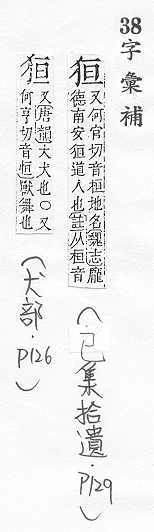 38字彙補
狟又何官切音桓地名魏志龐
德南安狟道人也註从桓音
(巳集拾遺·P129)
狟又唐韻大犬也〇又
何亨切音恒獸舞也
(犬部·P126)